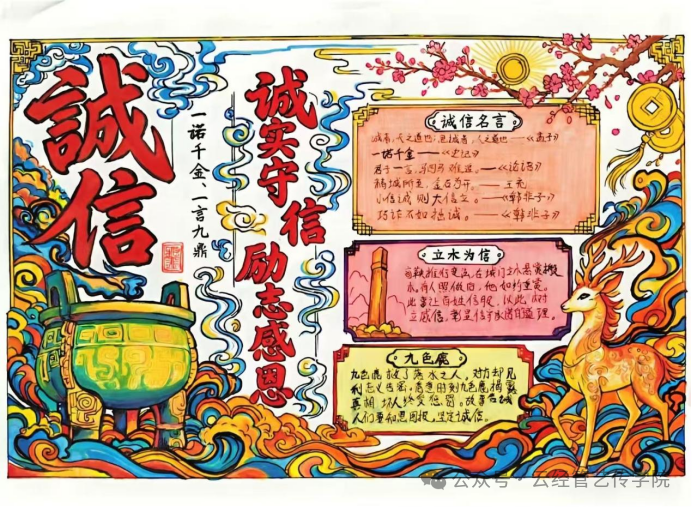 誠信
一诺千金、一言九鼎
诚实守信励志感恩
诚信名言
诚者,天之道也;思诚者,人之道也——《孟子》
一诺千金——《史记》
君子一言,驷马难追。——《论语》
精诚所至,金石为开。——王充
小信诚则大信立。——《韩非子》
巧诈不如拙诚。——《韩非子》
立木为信
商鞅推行变法,在城门立木悬赏搬
木,有人照做后,他如约重赏。
此事让百姓信服,以此树
立威信,彰显信守承诺的道理。
九色鹿
九色鹿救了落水之人,对方却见
利忘义告密,危急时刻九色鹿揭露
真相,坏人终受惩罚,故事告诫
人们要知恩图报,坚定诚信。
公众号·云经管艺传学院